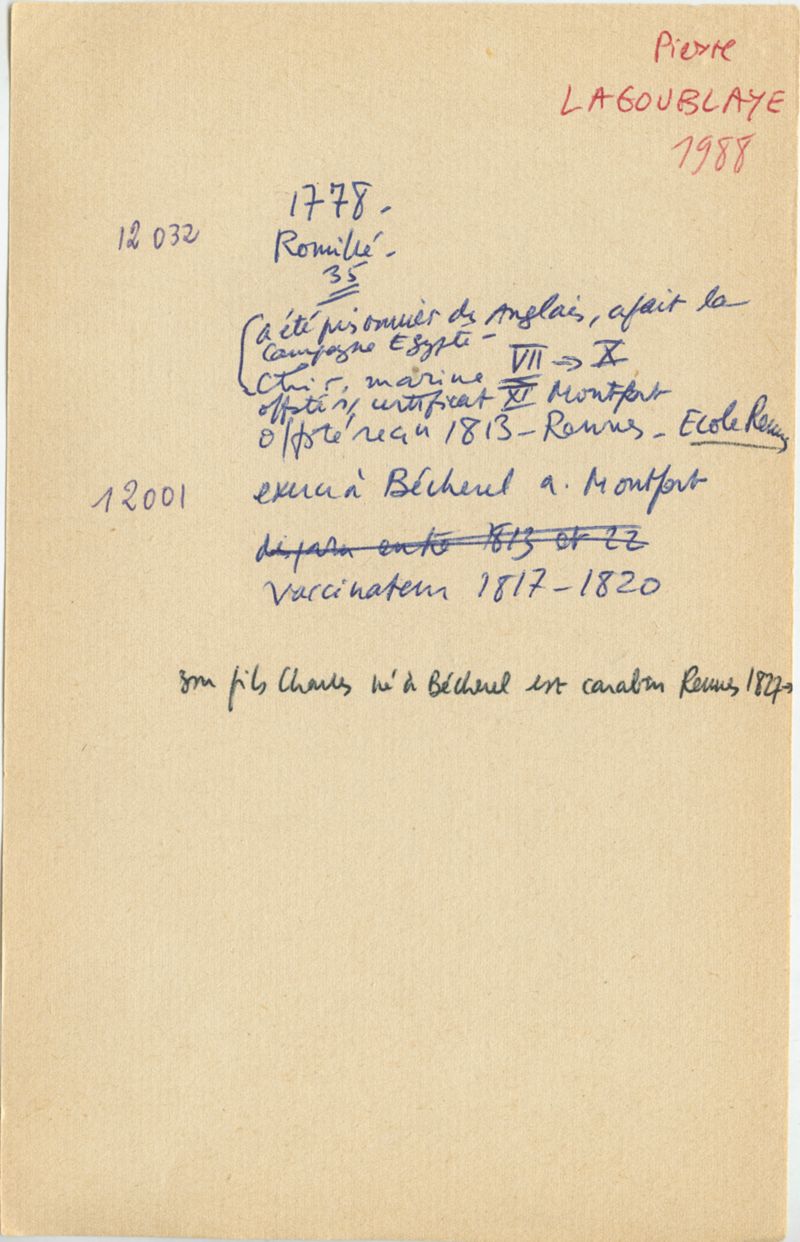 Pierre
LAGOUBLAYE
1988
1778 -
12 032
Romillé -
35
a été prisonnier des Anglais, a fait la
Campagne Egypte -
Chir, marine VII → X
certificat XI Montfort
reçu 1813 - Rennes - Ecole Rennes
12001
exerce à Bécherel a. Montfort
disparu entre 1813 et 22
vaccinateur 1817-1820
son fils Charles né à Bécherel est carabin Rennes 1827→